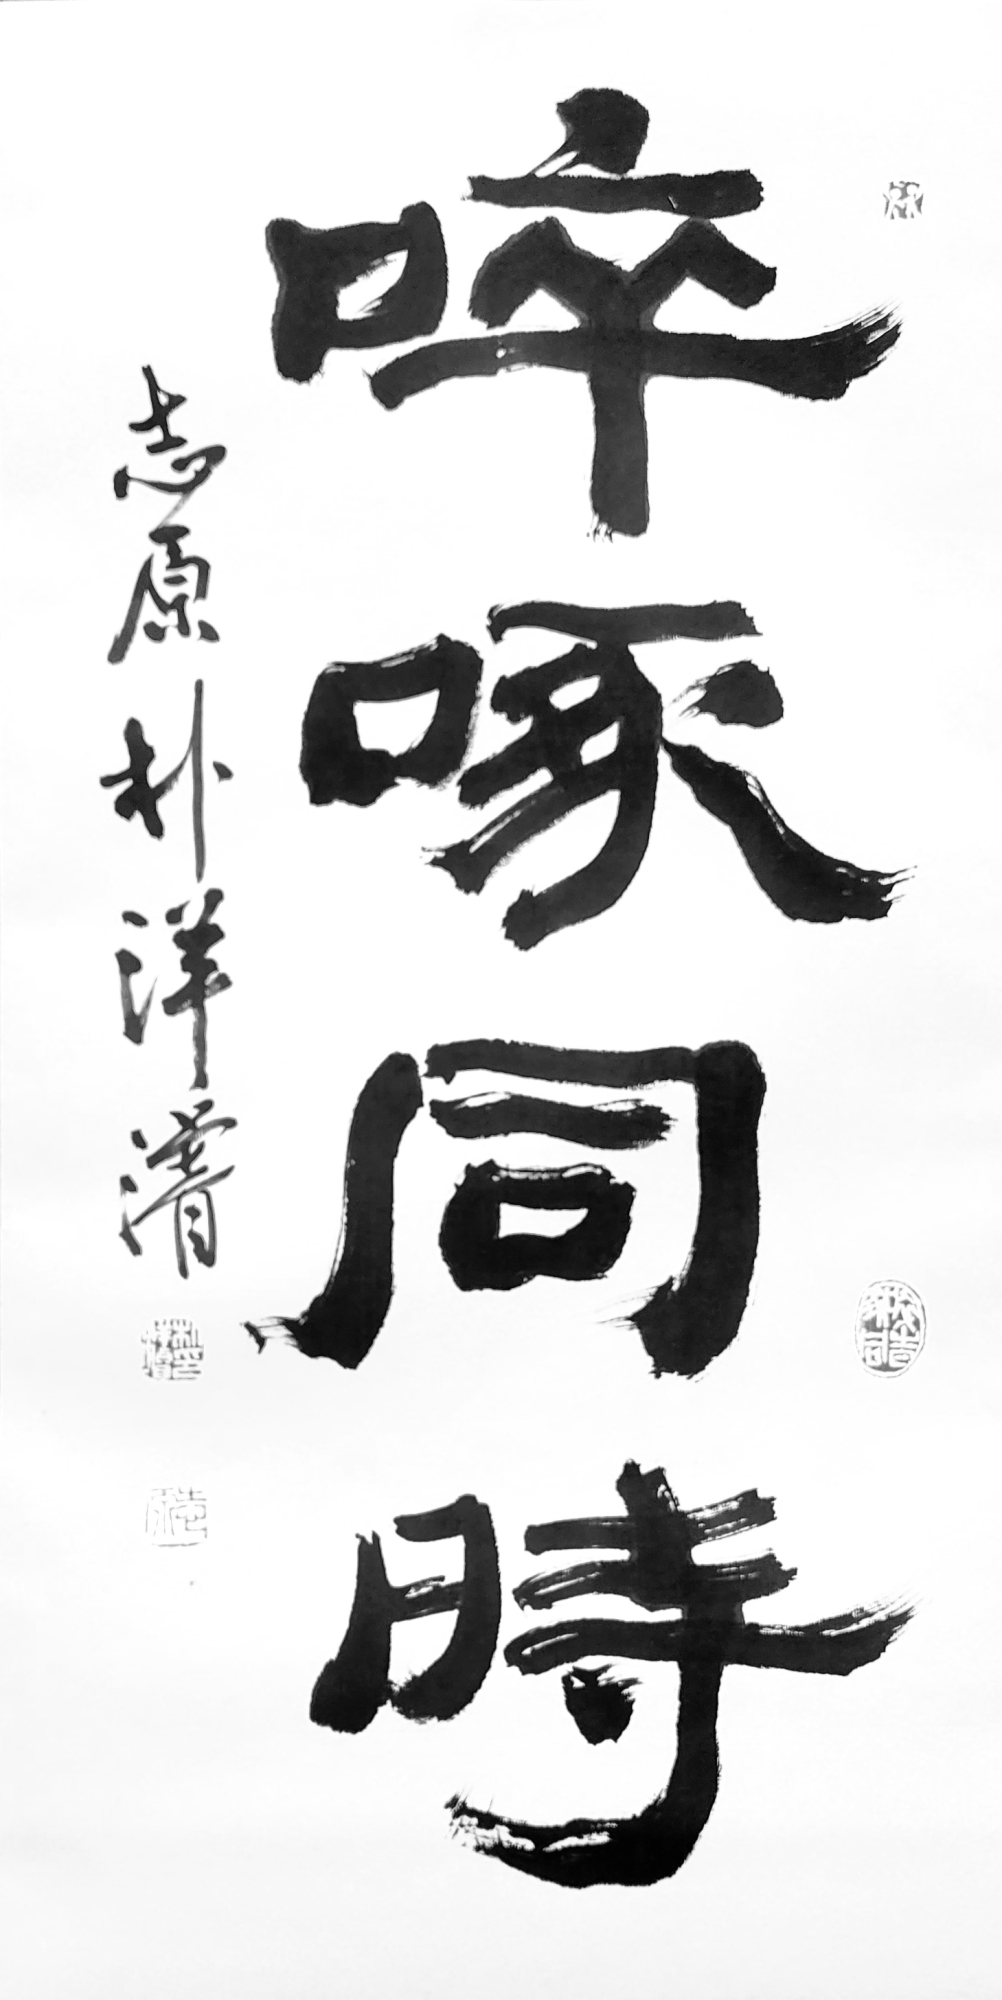 啐啄同時
志原 朴洋濬